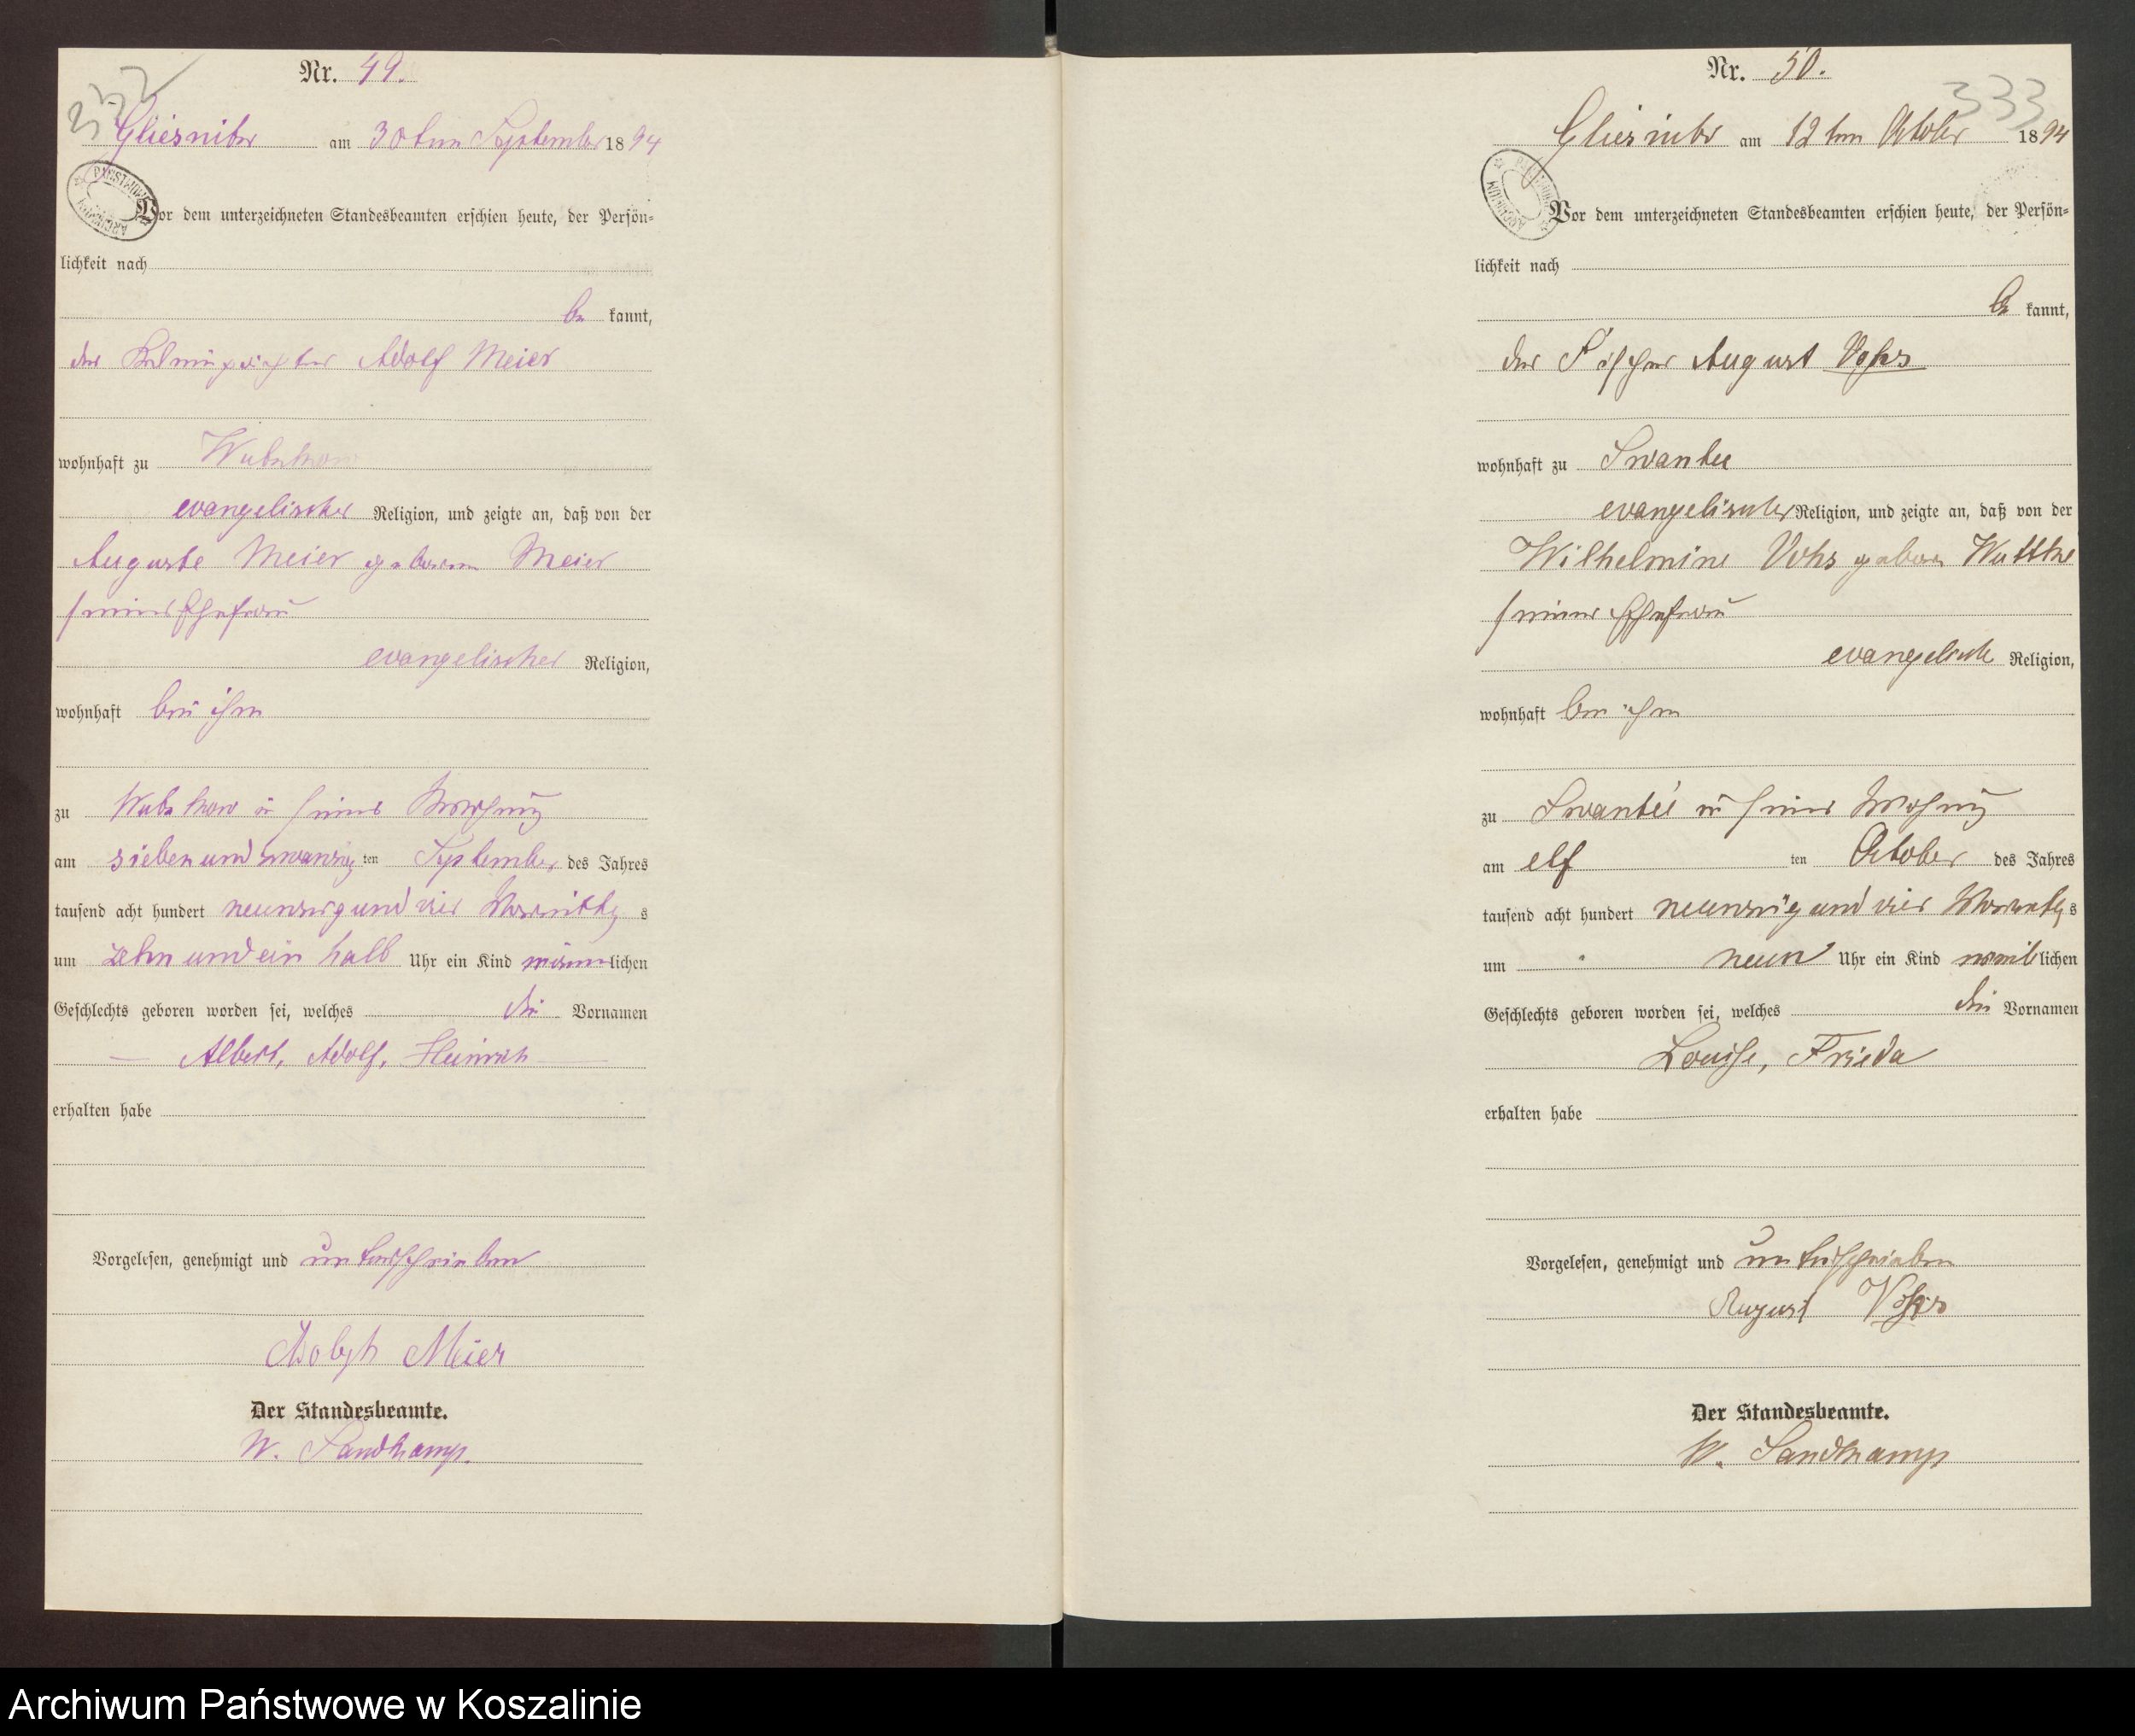 332
Nr. 49.
Gliesnitz am 30ten September 1894
Vor dem unterzeichneten Standesbeamten erschien heute, der Persön=
lichkeit nach
be kannt,
der Adolf Meier
wohnhaft zu Wobeskow
evangelischer Religion, und zeigte an, daß von der
Auguste Meier geborene Meier
seiner Ehefrau
evangelischer Religion,
wohnhaft bei ihm
zu in seiner Wohnung
am siebenundzwanzig ten September des Jahres
tausend acht hundert neunzig und vier Vormittag s
um zehn und ein halb Uhr ein Kind männlichen
Geschlechts geboren worden sei, welches die Vornamen
— Albert, Adolf, Heinrich —
erhalten habe
Vorgelesen, genehmigt und unterschrieben
Adolph Meier
Der Standesbeamte.
W. Sandkamp.
333
Nr. 50.
Gliesnitz am 12ten October 1894
Vor dem unterzeichneten Standesbeamten erschien heute, der Persön=
lichkeit nach
be kannt,
der Fischer August Vohs
wohnhaft zu Swantee
evangelischer Religion, und zeigte an, daß von der
Wilhelmine Vohs geboren Wuttke
seiner Ehefrau
evangelische Religion,
wohnhaft bei ihm
zu Swantee in seiner Wohnung
am elf ten October des Jahres
tausend acht hundert neunzig und vier Vormittag s
um neun Uhr ein Kind weiblichen
Geschlechts geboren worden sei, welches die Vornamen
Louise, Frieda
erhalten habe
Vorgelesen, genehmigt und unterschrieben
August Vohs
Der Standesbeamte.
W. Sandkamp
Archiwum Państwowe w Koszalinie